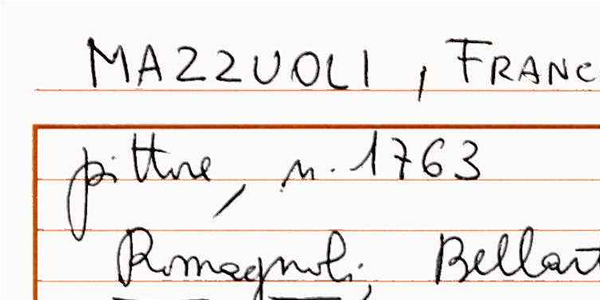 MAZZUOLI, FRANC
pittore, n. 1763
Romagnoli, Bellart